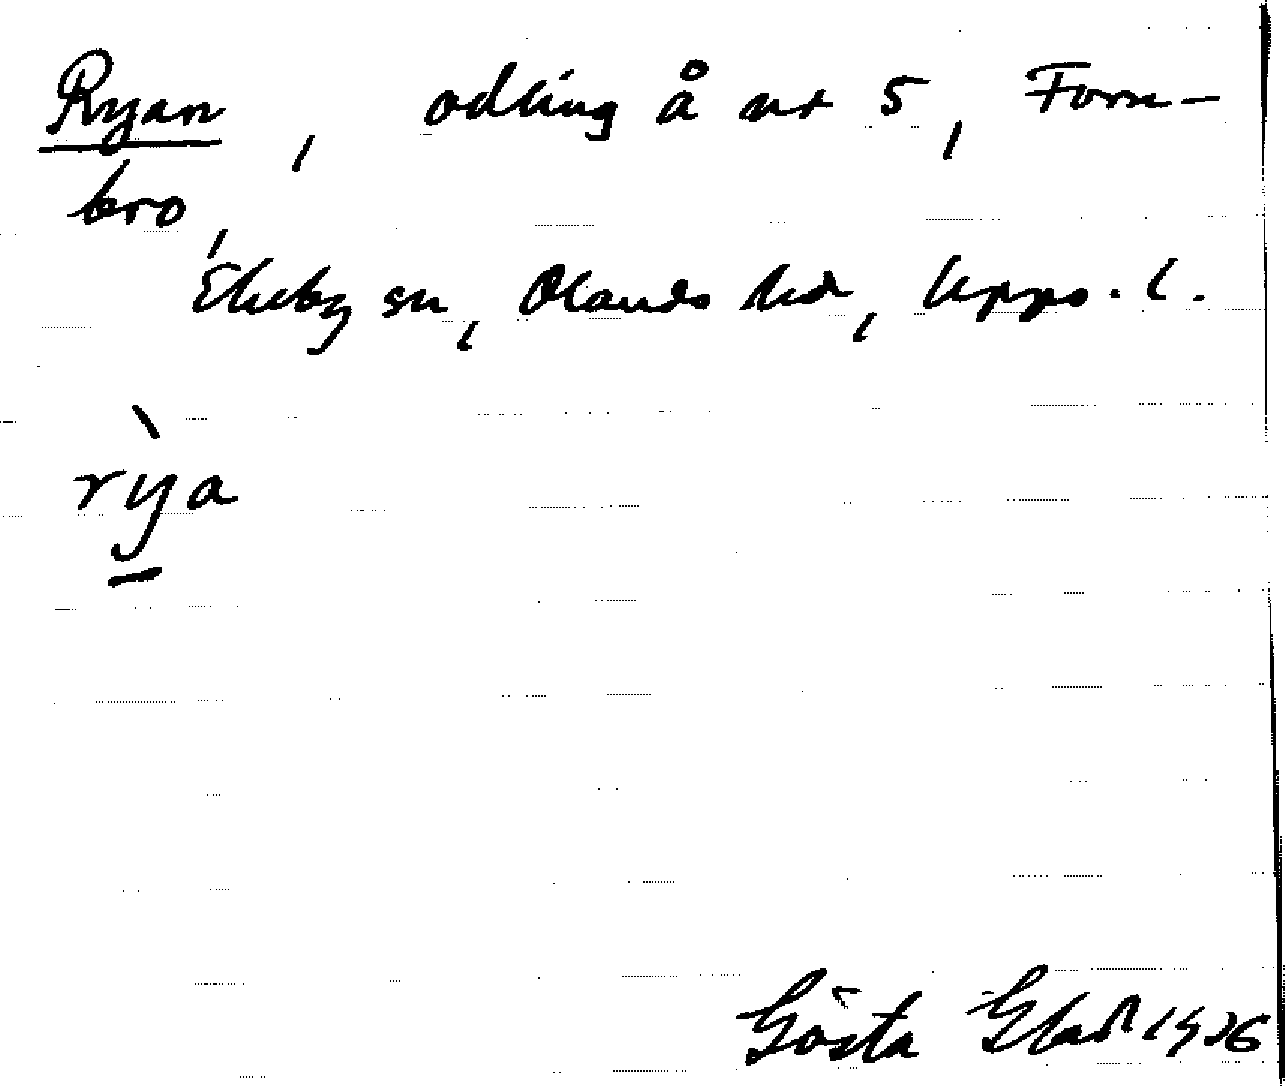 Ryan, odling å nr 5, Forn-
bro,
Ekeby sn, Olands hd, Upps. l.
rỳa
Gösta